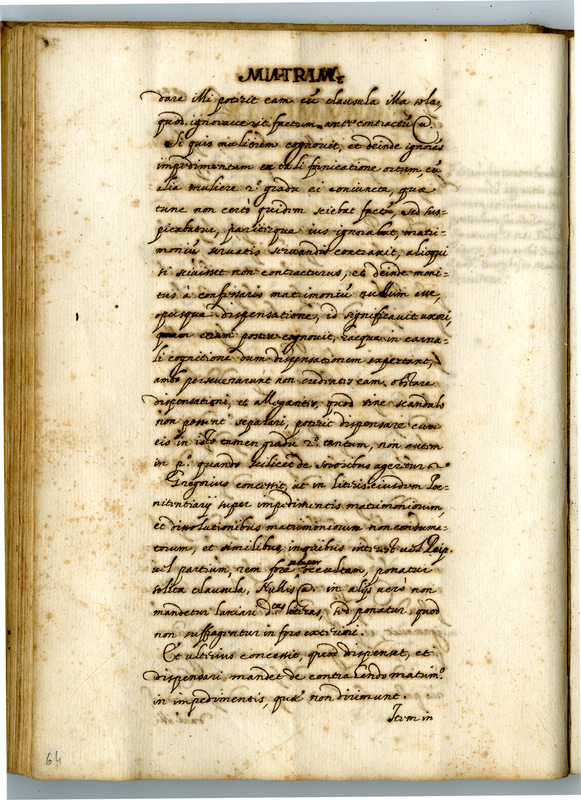 MATRIM.
dare illi potirit eam cũ clausula illa sola,
quod ignoraverit factum ante contractũ &.
Si quis mulierem cognovit, et deinde ignorãs
impedimentum ex tali fornicatione ortum, cũ
alia muliere 2.º gradu ei coniuncta, quæ
tunc non certò quidem sciebat factũ, sed sus-
picabatur, pariterque ius ignorabat, matri-
moniũ servatis servandis contraxit, alioqui
si scivisset non contracturus, et deinde moni-
tus à confessario matrimoniũ nullum esse,
opusque dispensatione, id significavit uxori,
quam etiam postea cognovit, eaque in carna-
li cognitione dum dispensationem expectant,
ambo perseverarunt non credentes eam obstare
dispensationi, et allegantes, quod sine scandalo
non possunt separari, poterit dispensare cum
eis in isto tamen gradu 2.º tantum, non autem
in p.º quando scilicet de sororibus ageretur
Gregorius concessit, ut in literis eiusdem Poe-
nitentiarij super impedimentis matrimoniorum,
et dissolutionibus matrimoniorum non consuma-
torum, et similibus, in quibus interest
vel partium, rem fore semper occultam, ponatur
solita clausula, Nullis &. in alijs verò non
mandetur laniari d.cas literas, sed ponatur, quod
non suffragentur in foro exteriori.
Et ulterius concessit, quod dispenset, et
dispensari mandet de contrahendo matrim.º
in impedimentis, quæ non dirimunt.
Item in
64